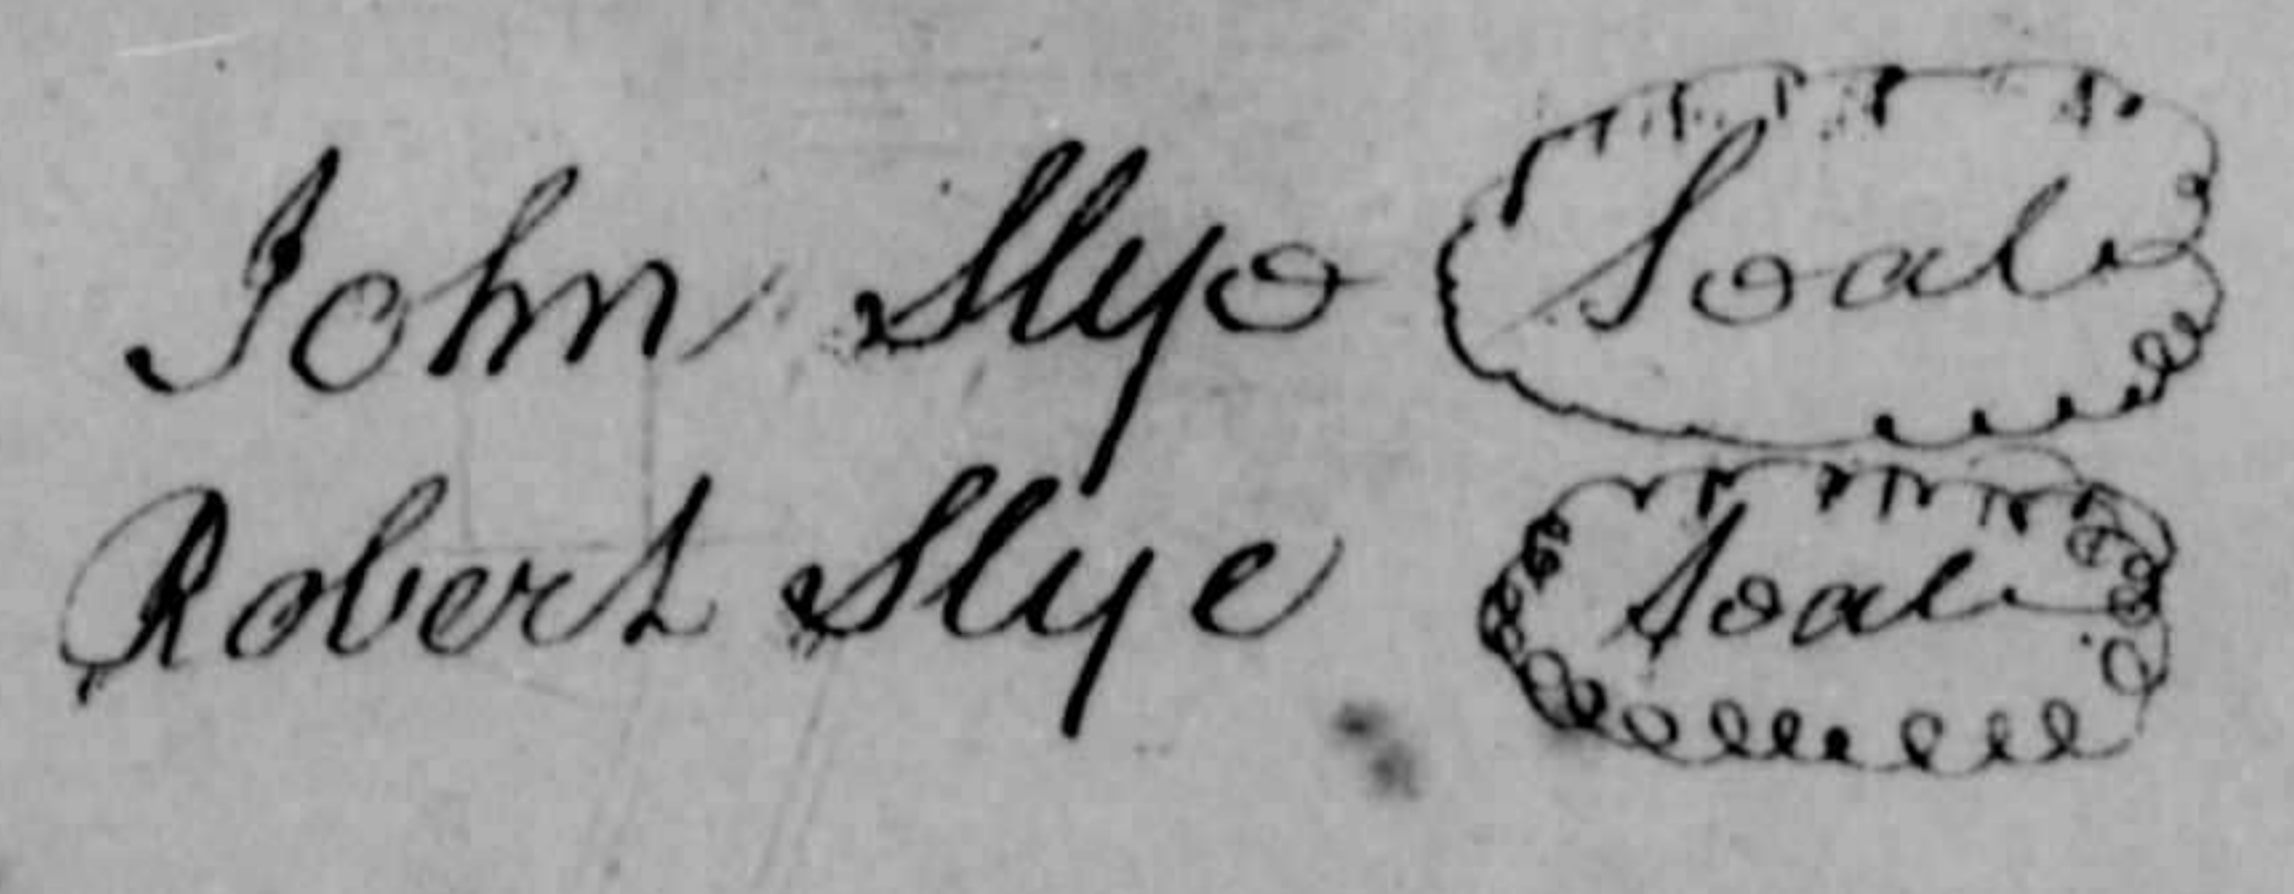 John Slye Seal
Robert Slye Seal